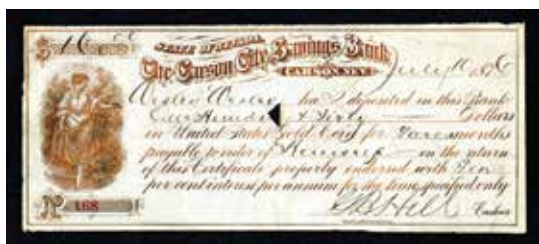 $ 160
STATE OF NEVADA
The Carson City Savings Bank
CARSON, NEV. July 10 1876
Wesley has deposited in this Bank
One Hundred & Sixty Dollars
in United States Gold Coin for months
payable to order of on the return
of this Certificate properly endorsed with Ten
per cent interest per annum for the time specified only
No. 168 Hill Cashier